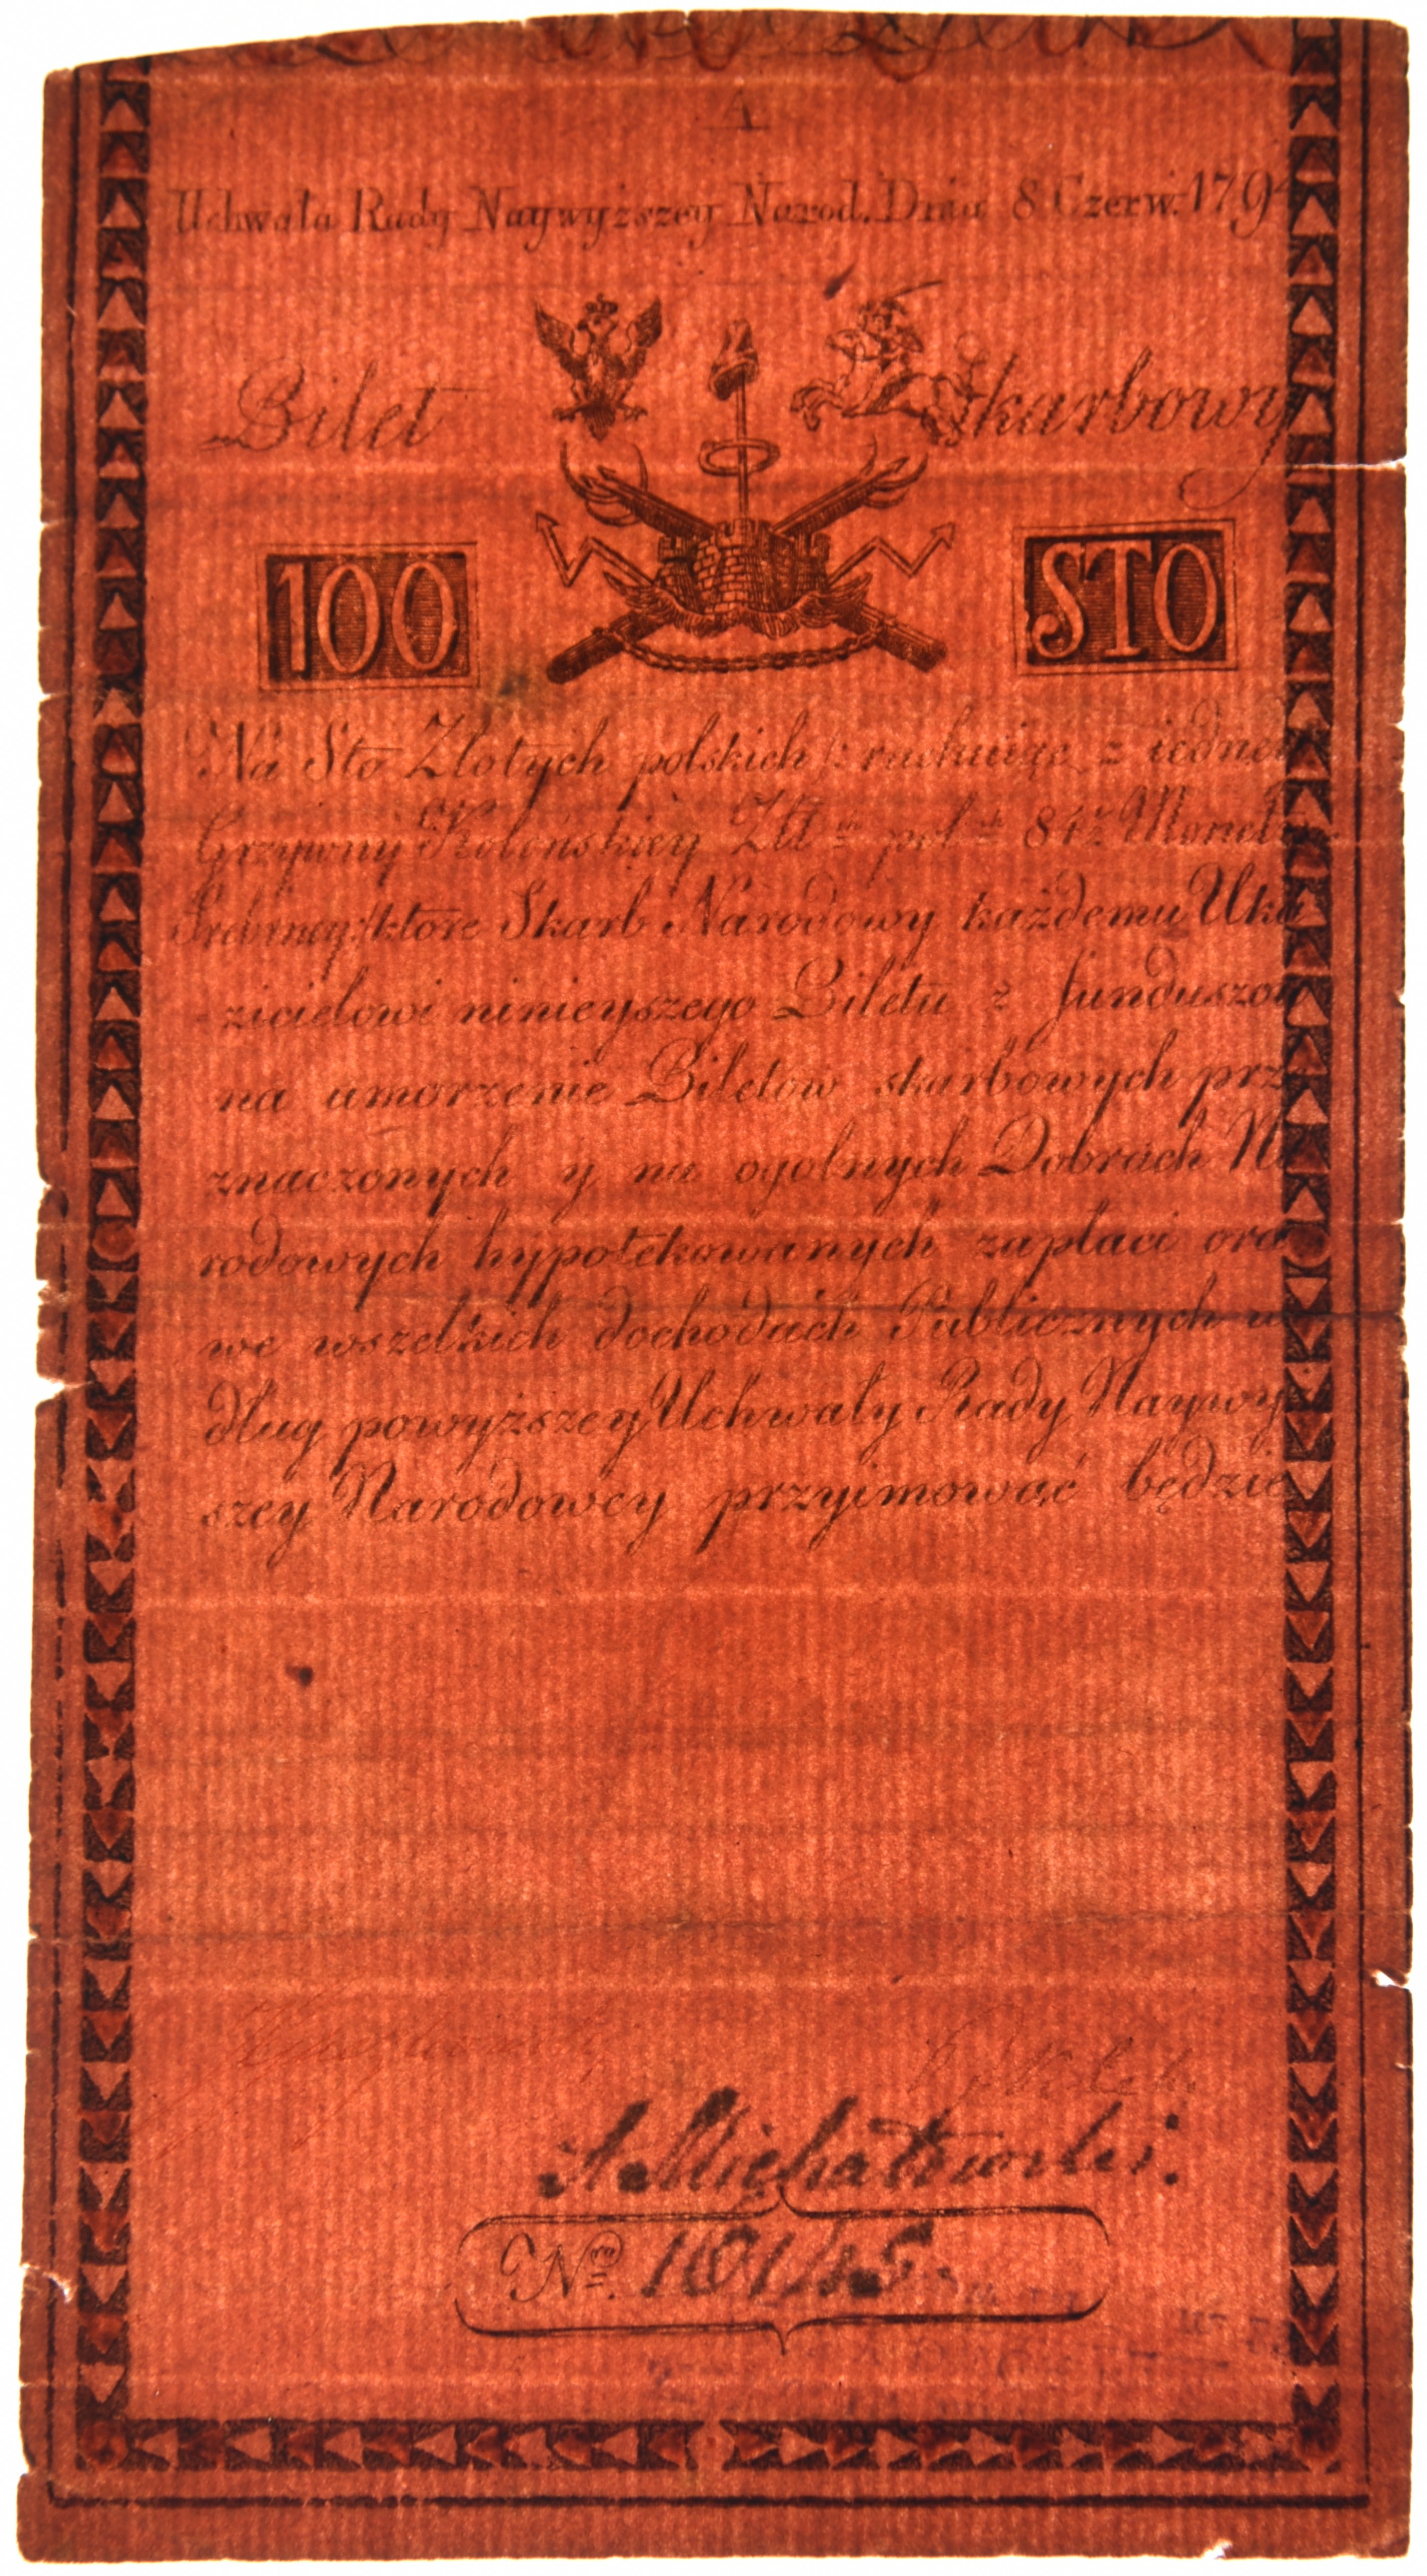 A
Uchwała Rady Naywyższey Narod. Dnia 8 Czerw. 1794
Bilet Skarbowy
100 STO
Na Sto Złotych polskich /: rachuiąc z iedney
Grzywny Kolońskiey Zł pol 84½ Monety
Srebrney :/ ktore Skarb Narodowy każdemu Uka
zicielowi ninieyszego Biletu z funduszow
na umorzenie Biletow skarbowych prze
znaczonych y na ogolnych Dobrach Na
rodowych hypotekowanych zapłaci oraz
we wszelkich dochodach Publicznych we
dług powyższey Uchwały Rady Naywyż
szey Narodowey przyimować będzie
A Michałowski.
Nro 16145